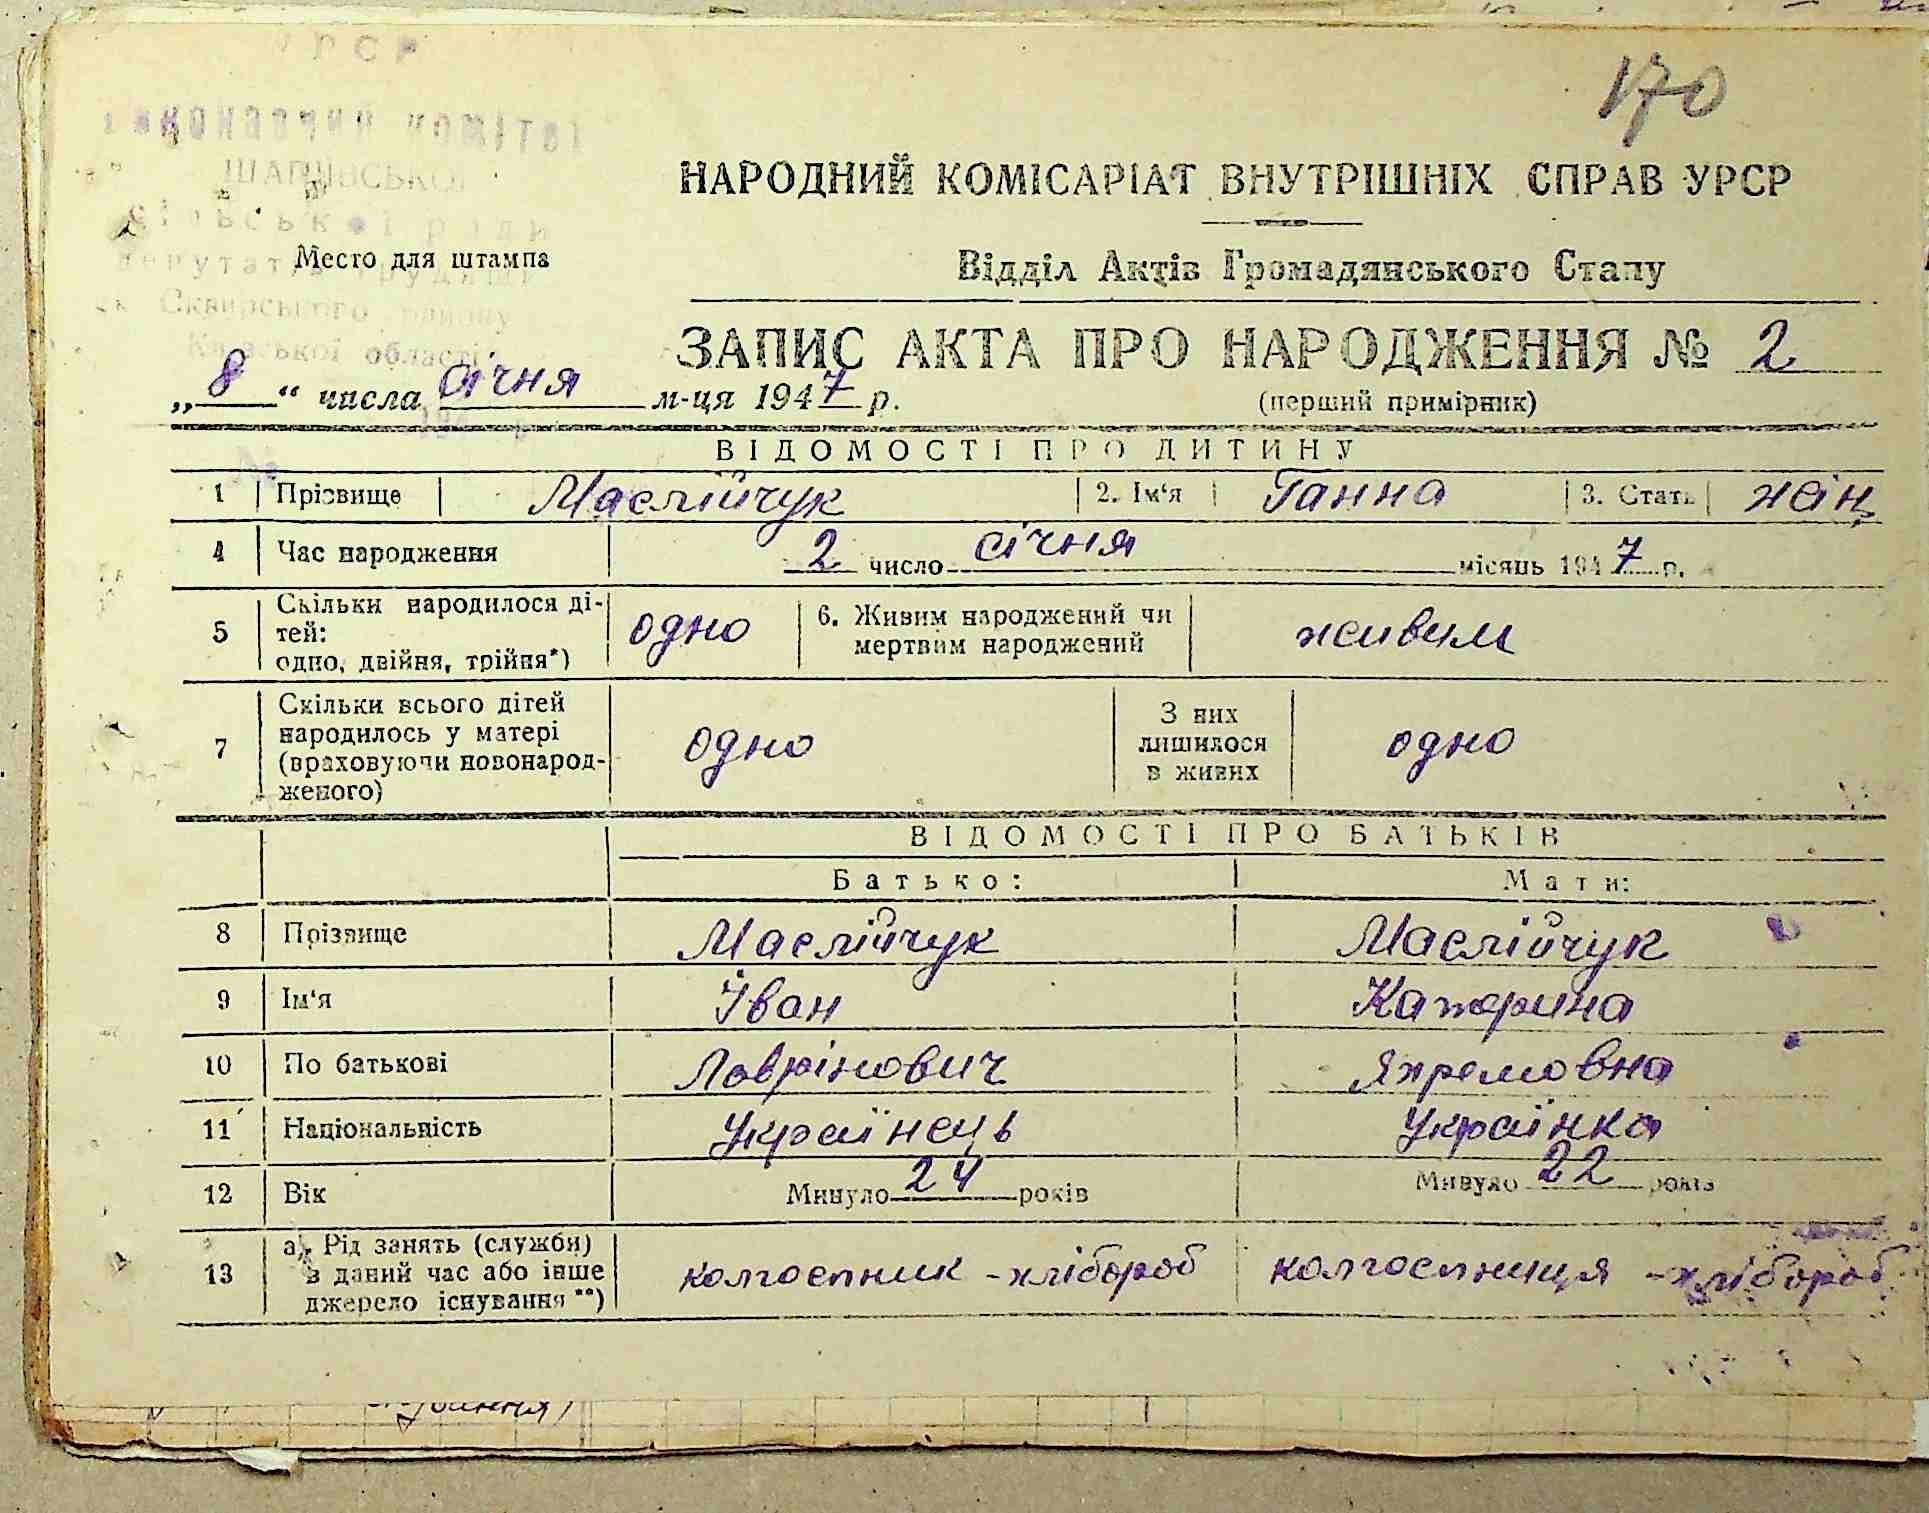 170
УРСР
виконавчий комітет
ШАПІЇВСЬКОЇ
сільської ради
депутатів трудящих
Сквирського району
Київської області
Место для штампа
НАРОДНИЙ КОМІСАРІАТ ВНУТРІШНІХ СПРАВ УРСР
Відділ Актів Громадянського Стану
ЗАПИС АКТА ПРО НАРОДЖЕННЯ № 2
(перший примірник)
„8“ числа січня м-ця 1947 р.
ВІДОМОСТІ ПРО ДИТИНУ
1 Прізвище Маслійчук 2. Ім'я Ганна 3. Стать жін.
4 Час народження 2 число січня місяць 1947 р.
5 Скільки народилося ді-
тей:
одно, двійня, трійня*) одно 6. Живим народжений чи
мертвим народжений живим
7 Скільки всього дітей
народилось у матері
(враховуючи новонарод-
женого) одно З них
лишилося
в живих одно
ВІДОМОСТІ ПРО БАТЬКІВ
Батько: Мати:
8 Прізвище Маслійчук Маслійчук
9 Ім'я Іван Катерина
10 По батькові Лаврінович Яхремовна
11 Національність Українець Українка
12 Вік Минуло 24 років Минуло 22 років
13 а) Рід занять (служби)
в даний час або інше
джерело існування**) колгоспник - хлібороб колгоспниця - хлібороб